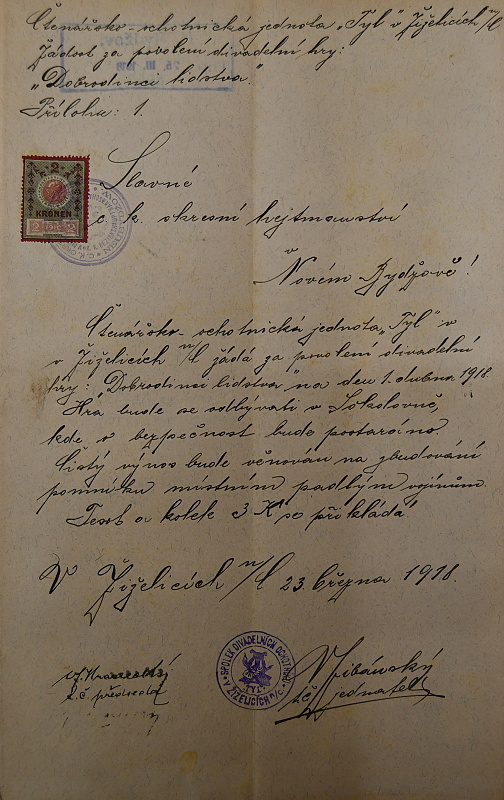 Čtenářsko-ochotnická jednota „Tyl" v Žiželicích n/C
Žádost za povolení divadelní hry:
„Dobrodinci lidstva."
Příloha: 1.
25. III. 1918
2
KRONEN
2 2
Slavné
c. k. okresní hejtmanství
v
Novém Bydžově!
Čtenářsko-ochotnická jednota „Tyl" v
v Žiželicích n/C žádá za povolení divadelní
hry: „Dobrodinci lidstva" na den 1. dubna 1918.
Hra bude se odbývati v Sokolovně,
kde o bezpečnost bude postaráno.
Čistý výnos bude věnován na zbudování
pomníku místním padlým vojínům.
Text a kolek 3 K se přikládá.
V Žiželicích n/C 23. března 1918.
t. č. předseda
SPOLEK DIVADELNÍCH OCHOTNÍKŮ
"TYL"
V ŽIŽELICÍCH n/C.
V Žibánský
t. č. jednatel